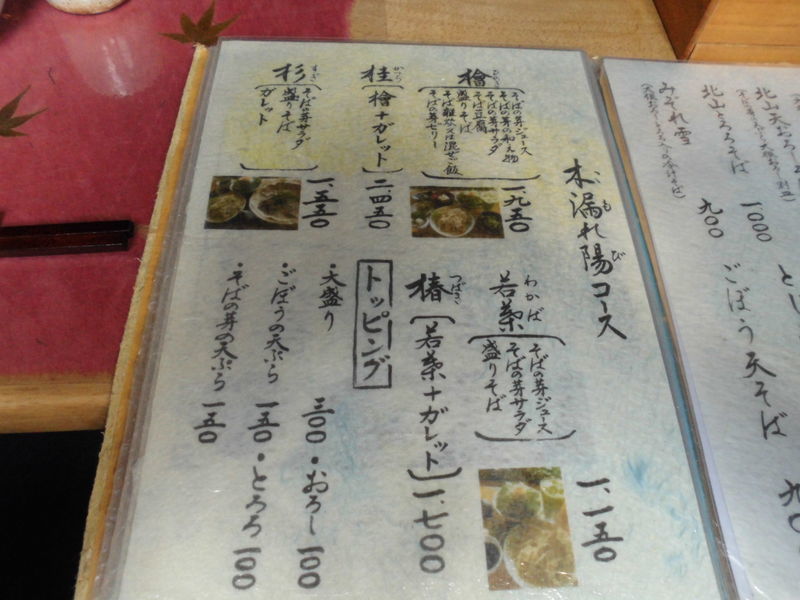 木漏れ陽コース
こもれび
檜
ひのき
そばの芽ジュース
そばの芽の和え物
そばの芽サラダ
そば豆腐
盛りそば
そば雑炊又は混ぜご飯
そばの芽ゼリー
一、九五〇
桂
かつら
(檜+ガレット)
二、四五〇
杉
すぎ
そばの芽サラダ
盛りそば
ガレット
一、五五〇
若葉
わかば
そばの芽ジュース
そばの芽サラダ
盛りそば
一、一五〇
椿
つばき
(若葉+ガレット)
一、七〇〇
トッピング
・大盛り 三〇〇
・おろし 一〇〇
・ごぼうの天ぷら 一五〇
・とろろ 一〇〇
・そばの芽の天ぷら 一五〇
北山天おろし
北山とろろそば 一〇〇〇
みぞれ雪 九〇〇
ごぼう天そば